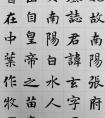 故南陽張府
誌君諱玄字
南陽白水人
自皇帝之苗
在中葉作牧